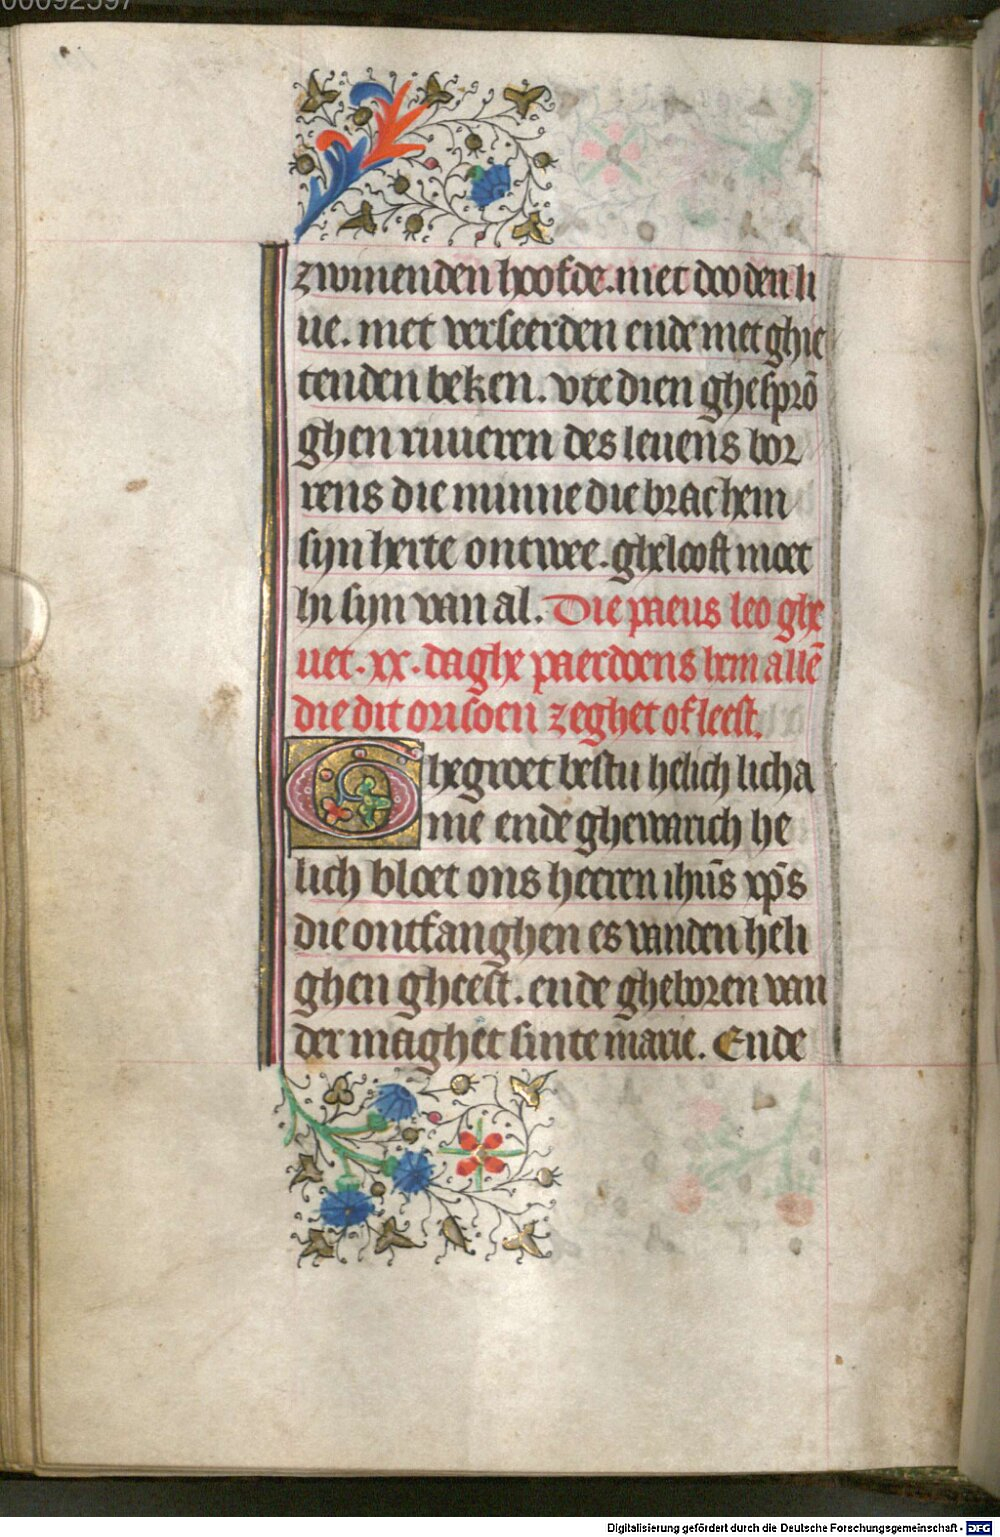 00092597
zwinenden hoofde. met dooden li
ue. met verseerden ende met ghie
tenden beken. vte dien ghesprō
ghen riuieren des leuens bor
rens die minne die brac hem
sijn herte ontwee. gheloeft moet
hi sijn van al. Die paeus leo ghe
uet. xx. daghe paerdoens hem allē
die dit orisoen zeghet of leest.
Ghegroet bestu helich licha
me ende ghewarich he
lich bloet ons heeren ihūs xp̄s
die ontfanghen es vanden heli
ghen gheest. ende gheboren van
der maghet sinte marie. Ende
Digitalisierung gefördert durch die Deutsche Forschungsgemeinschaft - DFG